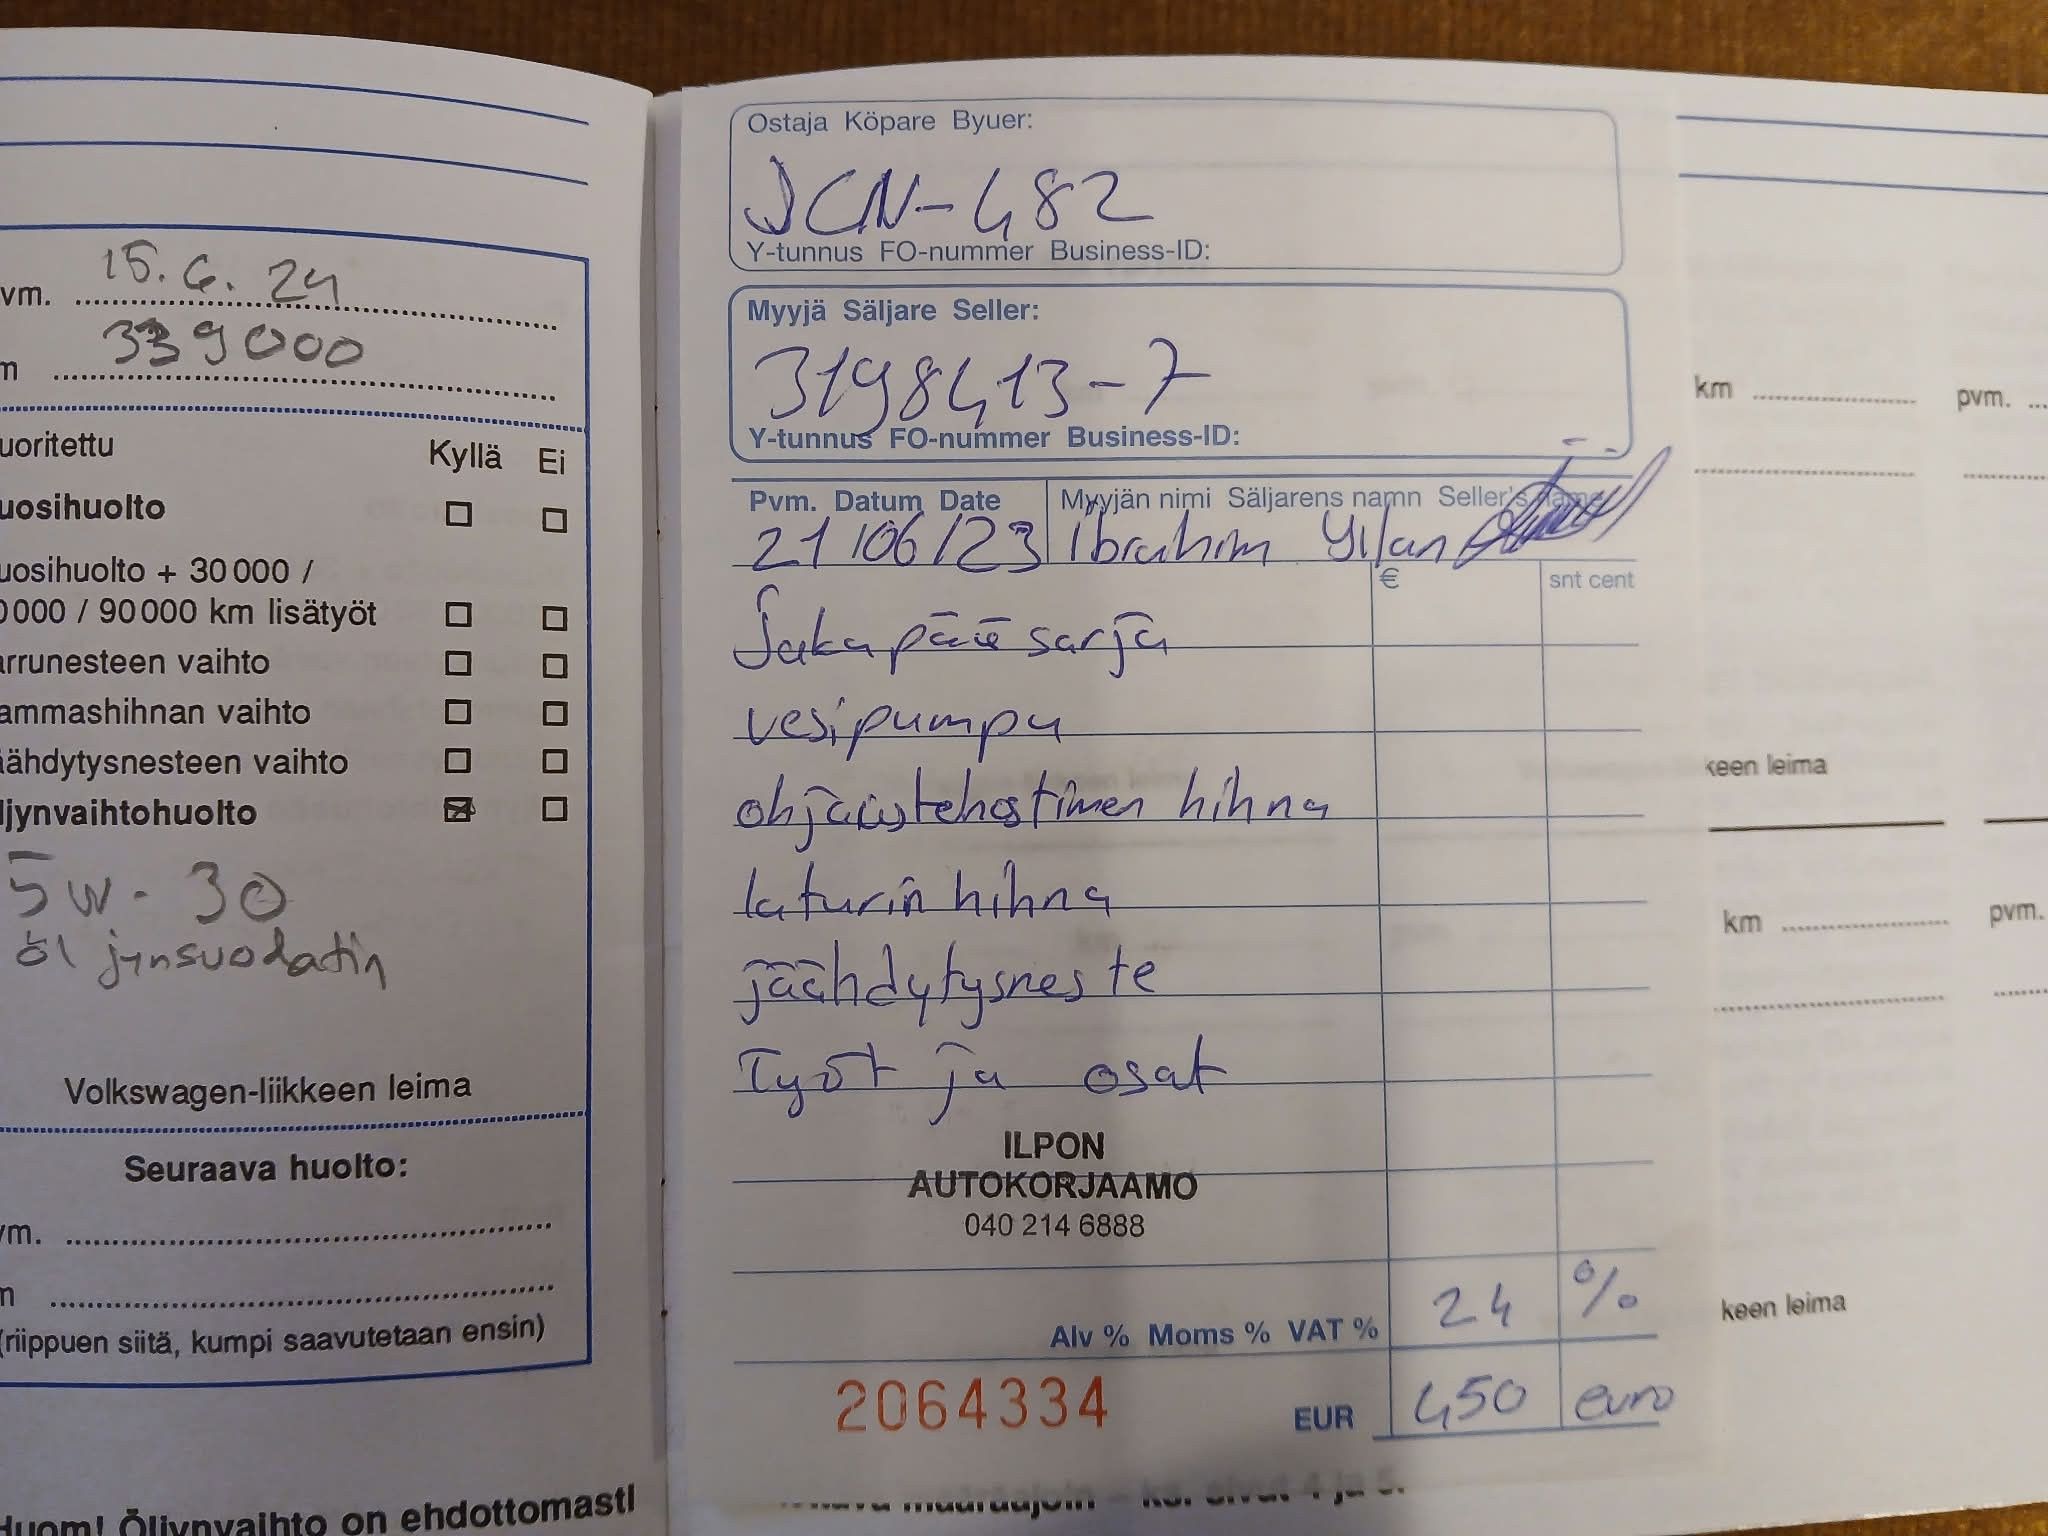 vm. 15.6.24
m 339000
uoritettu Kyllä Ei
uosihuolto
uosihuolto + 30 000 /
0 000 / 90 000 km lisätyöt
arrunesteen vaihto
ammashihnan vaihto
äähdytysnesteen vaihto
ljynvaihtohuolto
5W-30
öljynsuodatin
Volkswagen-liikkeen leima
Seuraava huolto:
vm.
m
(riippuen siitä, kumpi saavutetaan ensin)
Huom! Öljynvaihto on ehdottomasti
Ostaja Köpare Byuer:
JCN-482
Y-tunnus FO-nummer Business-ID:
Myyjä Säljare Seller:
3198413-7
Y-tunnus FO-nummer Business-ID:
Pvm. Datum Date Myyjän nimi Säljarens namn Seller's name
21/06/23 Ibrahim Yilan
€ snt cent
Jakapää sarja
vesipumpu
ohjaustehostimen hihna
laturin hihna
jäähdytysneste
Työt ja osat
ILPON
AUTOKORJAAMO
040 214 6888
Alv % Moms % VAT % 24 %
2064334 EUR 450 euro
määräajoin – ks. sivut 4 ja 5.
km pvm.
keen leima
km pvm.
keen leima